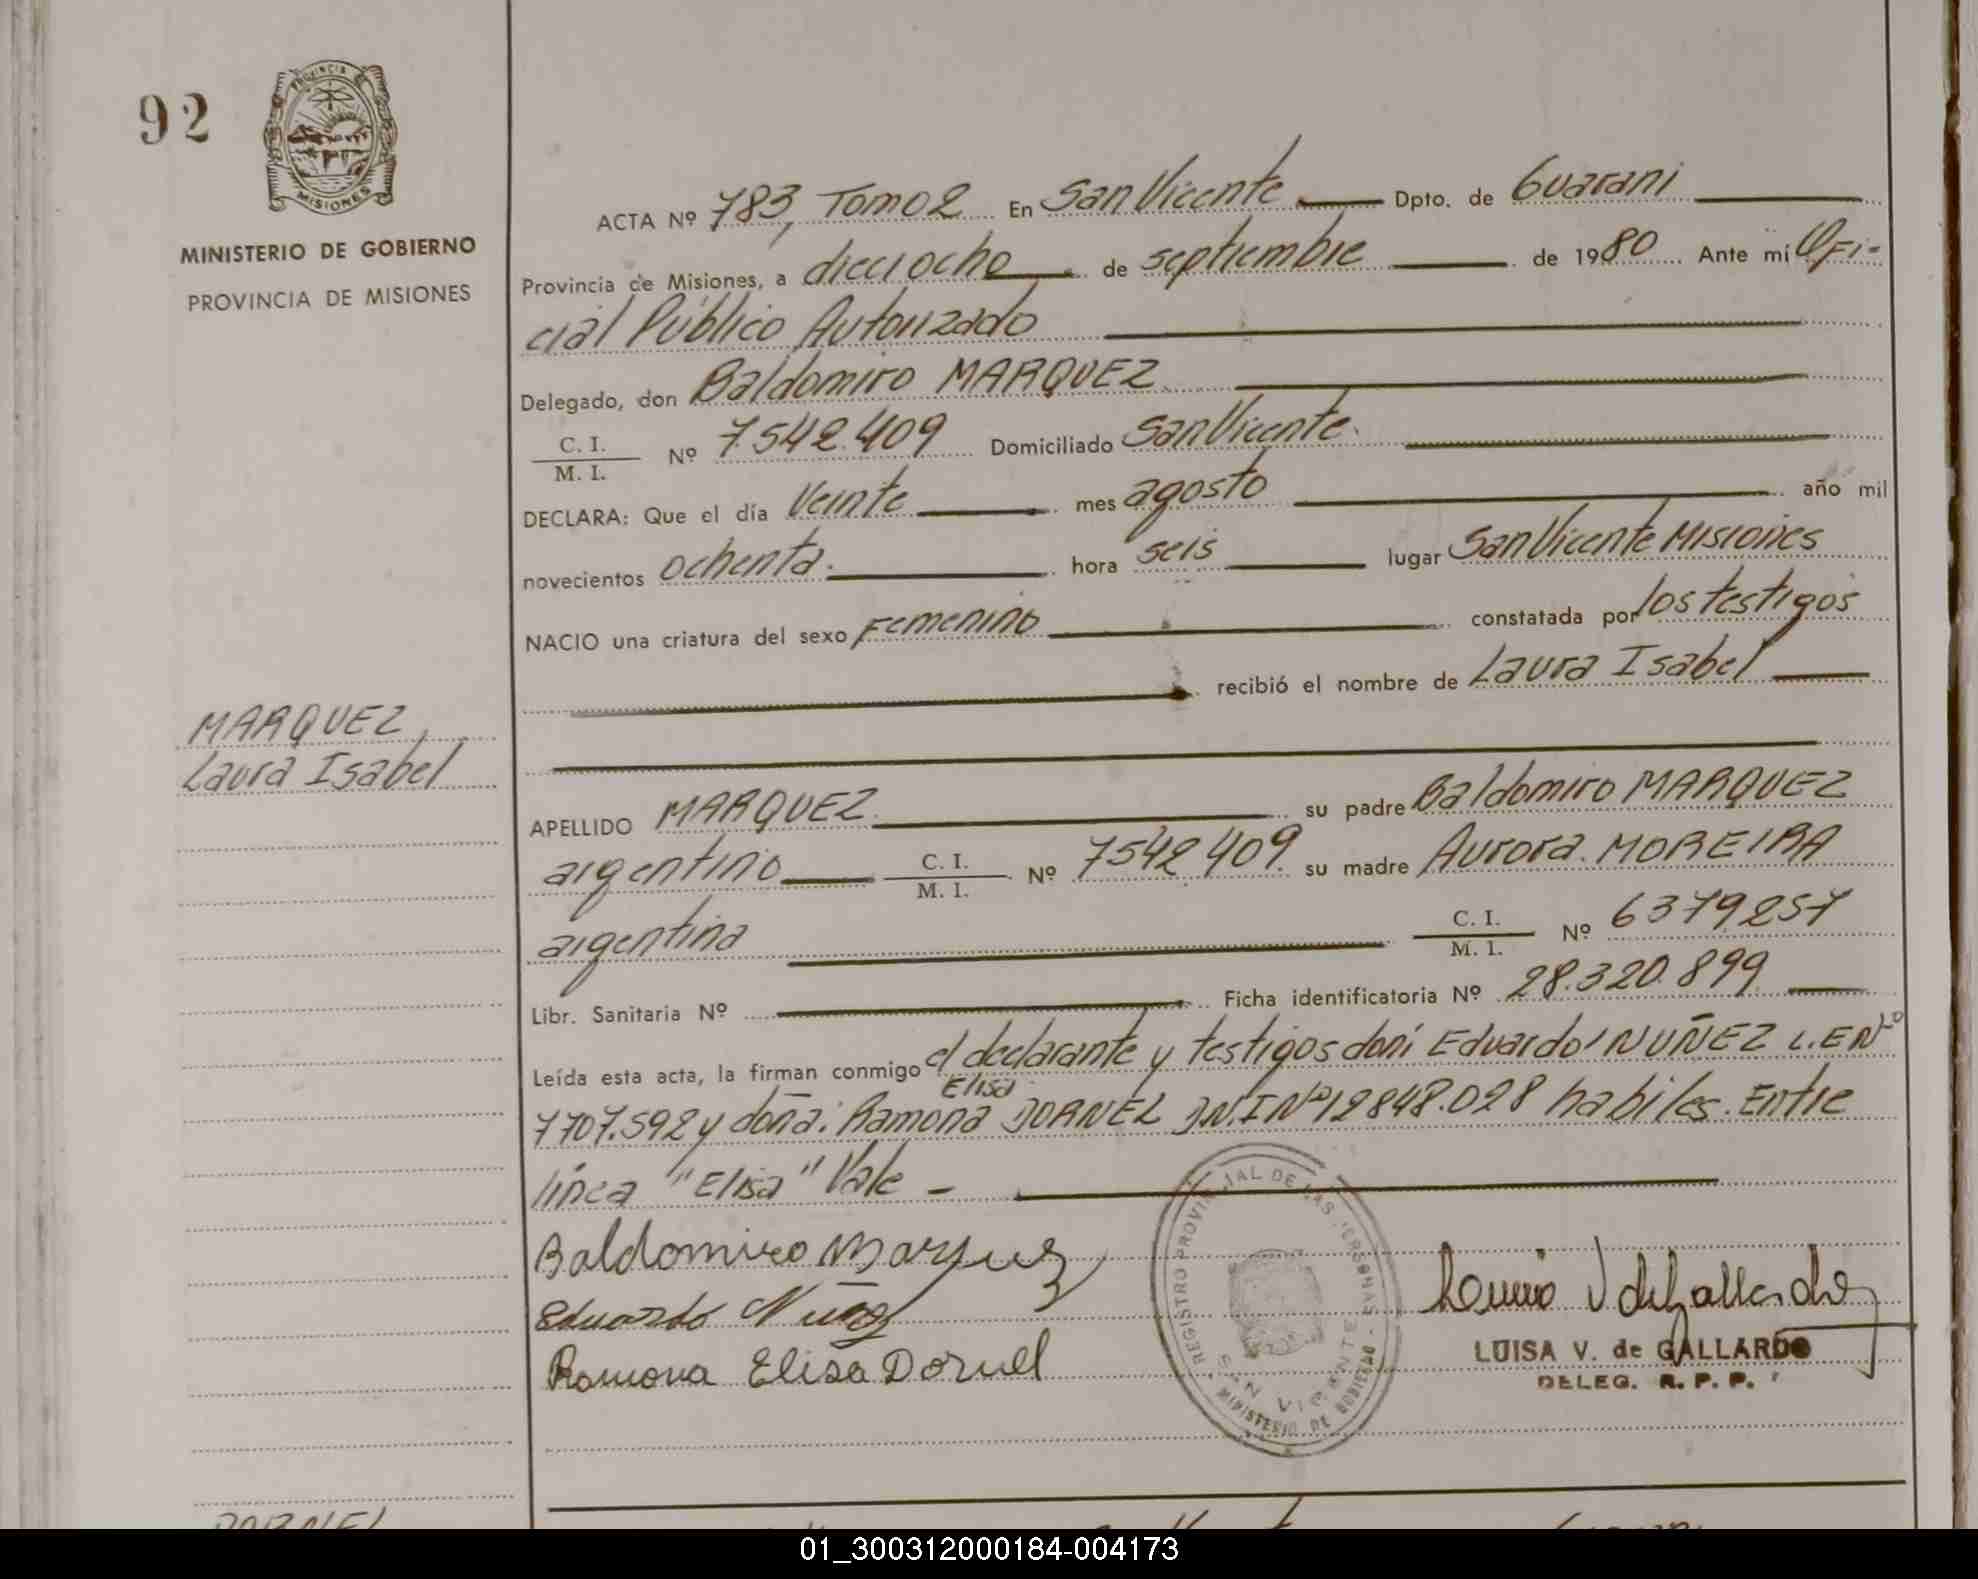 92
PROVINCIA DE
MISIONES
MINISTERIO DE GOBIERNO
PROVINCIA DE MISIONES
ACTA Nº 783, Tomo 2 En San Vicente Dpto. de Guarani
Provincia de Misiones, a dieciocho de septiembre de 1980 Ante mí Ofi-
cial Público Autorizado
Delegado, don Baldomiro MARQUEZ
C. I. / M. I. Nº 7.542.409 Domiciliado San Vicente.
DECLARA: Que el día Veinte mes agosto año mil
novecientos ochenta. hora seis lugar San Vicente Misiones
NACIO una criatura del sexo Femenino constatada por los testigos
recibió el nombre de Laura Isabel
MARQUEZ,
Laura Isabel
APELLIDO MARQUEZ su padre Baldomiro MARQUEZ
argentino C. I. / M. I. Nº 7542.409. su madre Aurora MOREIRA
argentina C. I. / M. I. Nº 6379257
Libr. Sanitaria Nº Ficha identificatoria Nº 28.320.899
Leída esta acta, la firman conmigo el declarante y testigos don: Eduardo NUÑEZ L.E Nº
Elisa
7707.592 y doña: Ramona DORNEL DN.I Nº 12848.028 habiles. Entre
línea "Elisa" Vale -
Baldomiro Marquez
Eduardo Nuñez
Ramona Elisa Dornel
REGISTRO PROVINCIAL DE LAS PERSONAS - SAN VICENTE
MINISTERIO DE GOBIERNO
LUISA V. de GALLARDO
DELEG. R. P. P.
DORNEL
01_300312000184-004173